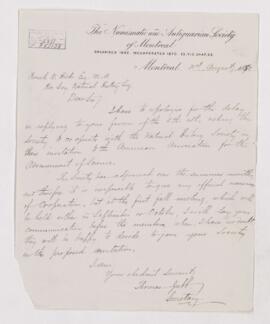 The Numismatic and Antiquarian Society
of Montreal
ORGANIZED 1862. INCORPORATED 1870.
Montreal, August
Esq. M.A.
Natural History Society
Dear Sir,
I have to apologise for the delay
in replying to your favor of the asking the
Society to co-operate with the Natural History Society in
their invitation to the American Association for the
Advancement of Science.
The Society has adjourned over the summer months,
and therefore it is impossible to give any official
of Cooperation, but at the first fall meeting, which will
be held either in September or October, I will lay your
communication before the members, when I have no doubt
they will be happy to to join your Society
in the proposed invitation.
I am
Your obedient Servant,
Secretary